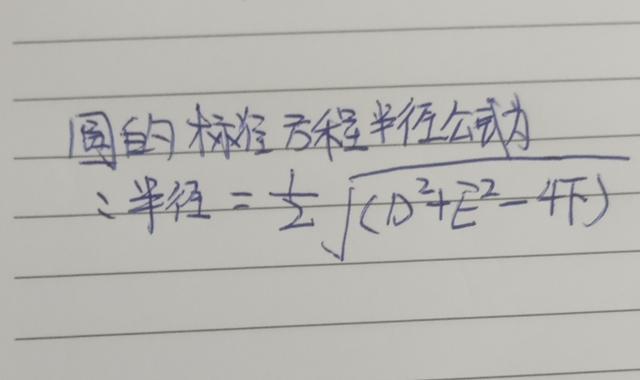 圆的标准方程半径公式为
：半径=½√(D²+E²-4F)